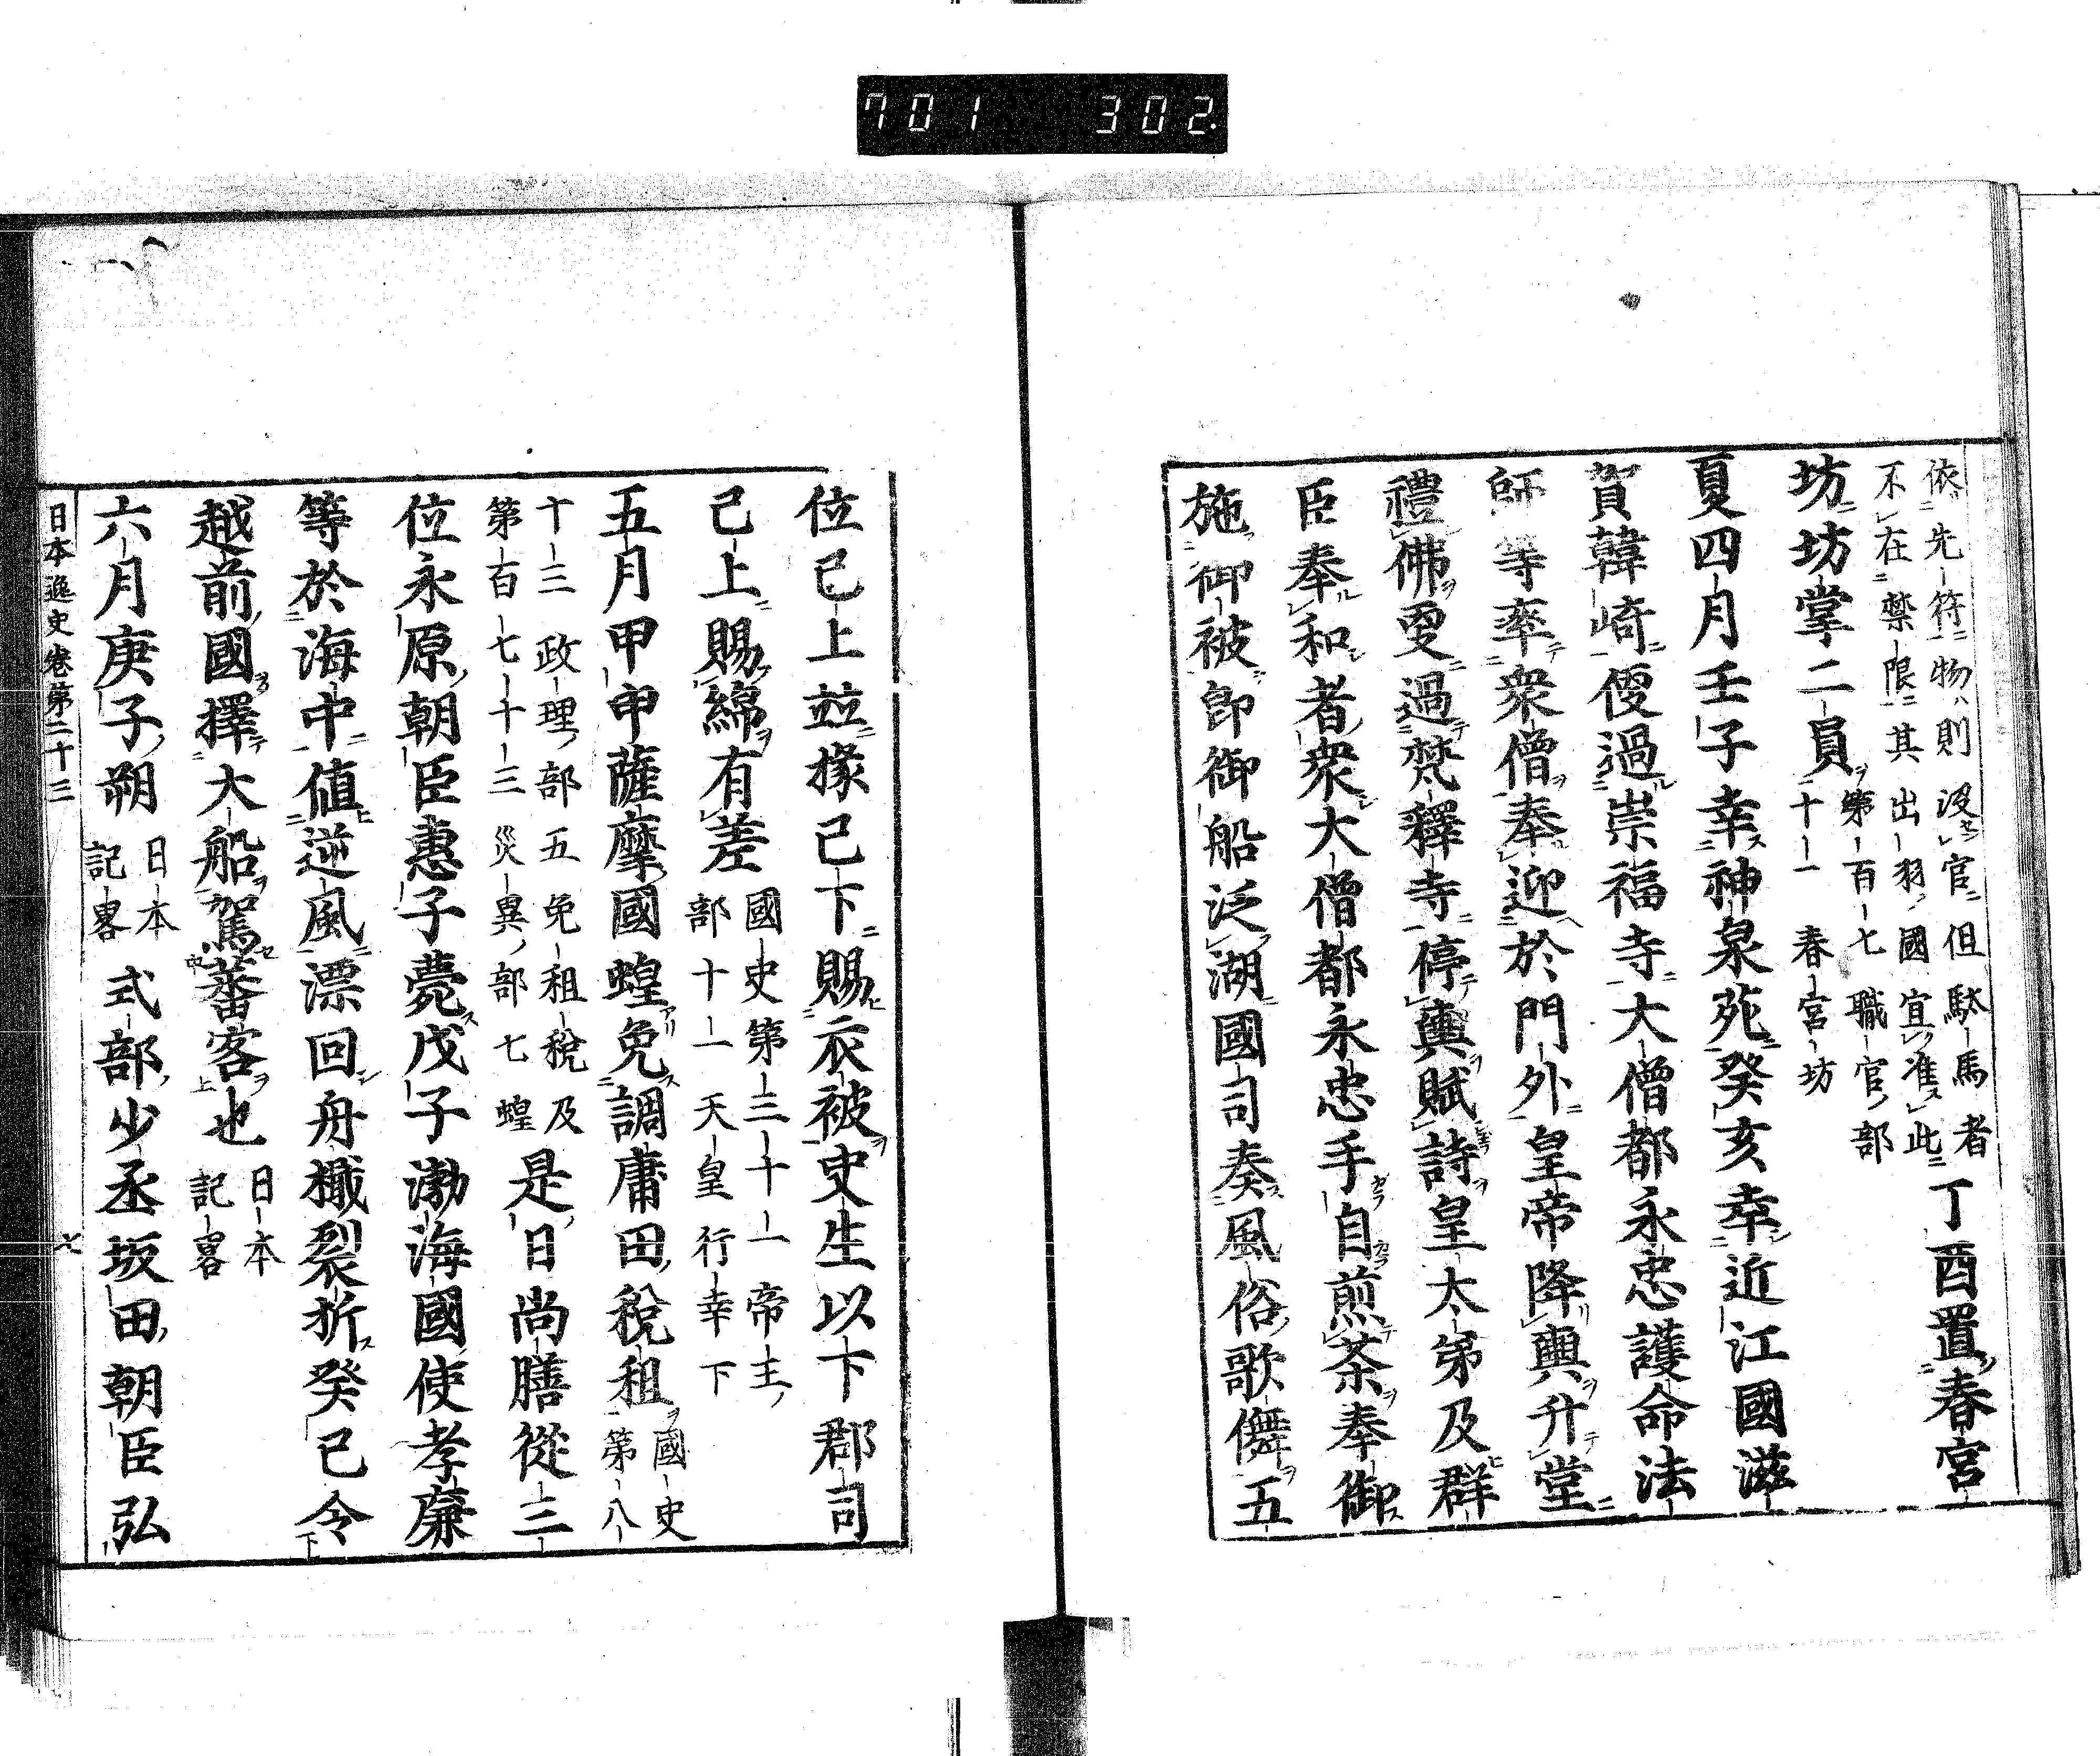 701 302.
依先符物則没官但駄馬者
不在禁限其出羽國宜准此
丁酉置春宮
坊坊掌二員
第百七職官部
十一春宮坊
夏四月壬子幸神泉苑癸亥幸近江國滋
賀韓崎便過崇福寺大僧都永忠護命法
師等率衆僧奉迎於門外皇帝降輿升堂
禮佛更過梵釋寺停輿賦詩皇太弟及群
臣奉和者衆大僧都永忠手自煎茶奉御
施御被即御船泛湖國司奏風俗歌儛五
位已上並掾已下賜衣被史生以下郡司
已上賜綿有差
國史第三十一帝王
部十一天皇行幸下
五月甲申薩摩國蝗免調庸田税租
國史
第八
十三政理部五免租税及
第百七十三災異部七蝗
是日尚膳從三
位永原朝臣惠子薨戊子渤海國使孝廉
等於海中値逆風漂回舟檝裂折癸巳令
越前國擇大船駕蕃客也
日本
記畧
六月庚子朔
日本
記畧
式部少丞坂田朝臣弘
日本逸史卷第二十三
七